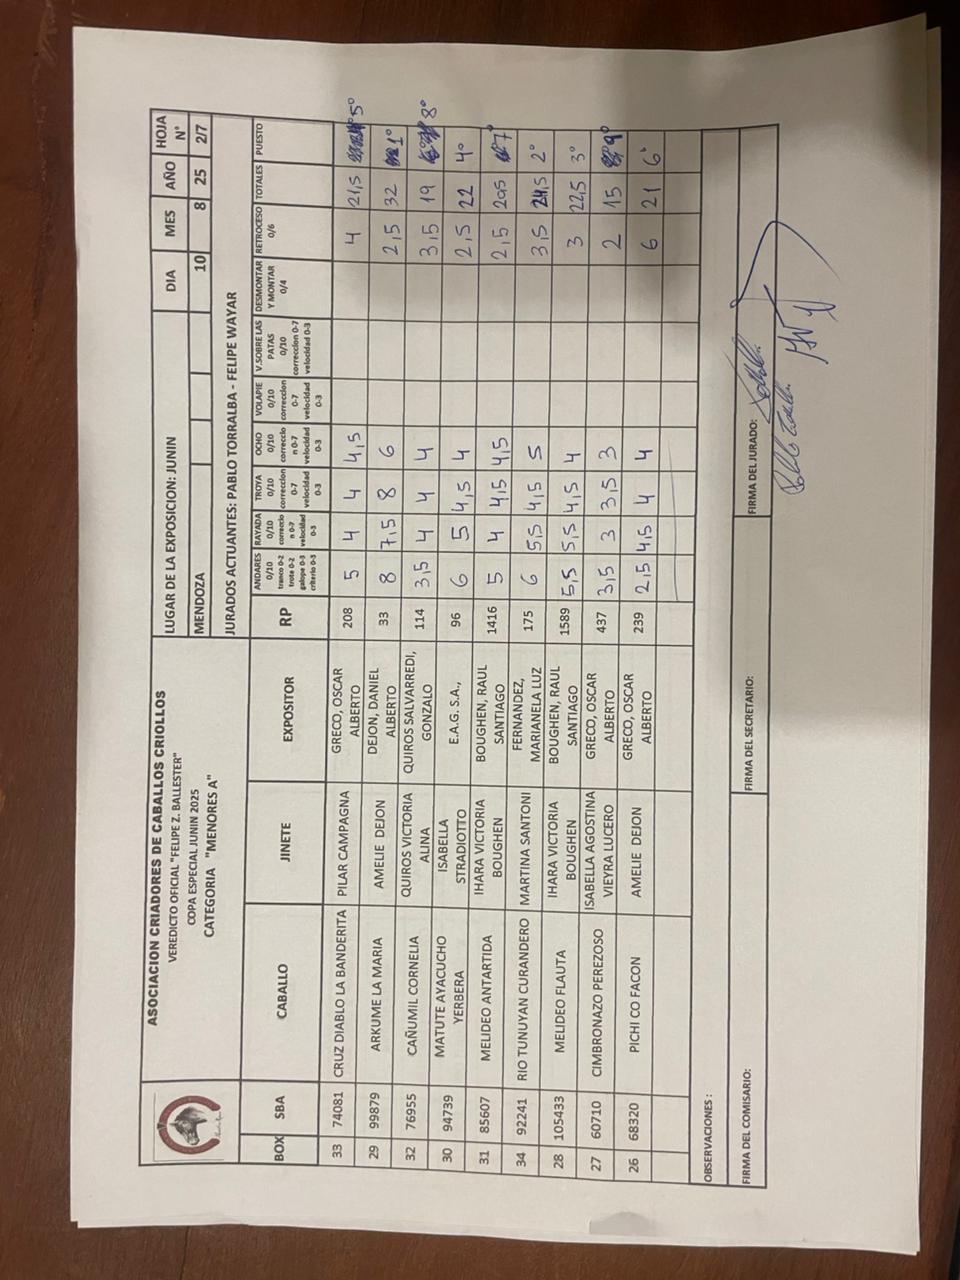 ASOCIACION CRIADORES DE CABALLOS CRIOLLOS
VEREDICTO OFICIAL "FELIPE Z. BALLESTER"
COPA ESPECIALJUNIN 2025
CATEGORIA "MENORES A"
LUGAR DE LA EXPOSICION: JUNIN DIA MES AÑO HOJA N°
MENDOZA 10 8 25 2/7
JURADOS ACTUANTES: PABLO TORRALBA - FELIPE WAYAR
BOX SBA CABALLO JINETE EXPOSITOR RP ANDARES 0/10 tranco 0-2 trote 0-2 galope 0-3 criterio 0-3 RAYADA 0/10 correccio n 0-7 velocidad 0-3 TROYA 0/10 correccion 0-7 velocidad 0-3 OCHO 0/10 correccio n 0-7 velocidad 0-3 VOLAPIE 0/10 correccion 0-7 velocidad 0-3 V.SOBRE LAS PATAS 0/10 correccion 0-7 velocidad 0-3 DESMONTAR Y MONTAR 0/4 RETROCESO 0/6 TOTALES PUESTO
33 74081 CRUZ DIABLO LA BANDERITA PILAR CAMPAGNA GRECO, OSCAR ALBERTO 208 5 4 4 4,5 4 21,5 5°
29 99879 ARKUME LA MARIA AMELIE DEJON DEJON, DANIEL ALBERTO 33 8 7,5 8 6 2,5 32 1°
32 76955 CAÑUMIL CORNELIA QUIROS VICTORIA ALINA QUIROS SALVARREDI, GONZALO 114 3,5 4 4 4 3,5 19 8°
30 94739 MATUTE AYACUCHO YERBERA ISABELLA STRADIOTTO E.A.G. S.A., 96 6 5 4,5 4 2,5 22 4°
31 85607 MELIDEO ANTARTIDA IHARA VICTORIA BOUGHEN BOUGHEN, RAUL SANTIAGO 1416 5 4 4,5 4,5 2,5 20,5 7°
34 92241 RIO TUNUYAN CURANDERO MARTINA SANTONI FERNANDEZ, MARIANELA LUZ 175 6 5,5 4,5 5 3,5 24,5 2°
28 105433 MELIDEO FLAUTA IHARA VICTORIA BOUGHEN BOUGHEN, RAUL SANTIAGO 1589 5,5 5,5 4,5 4 3 22,5 3°
27 60710 CIMBRONAZO PEREZOSO ISABELLA AGOSTINA VIEYRA LUCERO GRECO, OSCAR ALBERTO 437 3,5 3 3,5 3 2 15 9°
26 68320 PICHI CO FACON AMELIE DEJON GRECO, OSCAR ALBERTO 239 2,5 4,5 4 4 6 21 6°
OBSERVACIONES :
FIRMA DEL COMISARIO: FIRMA DEL SECRETARIO: FIRMA DEL JURADO: